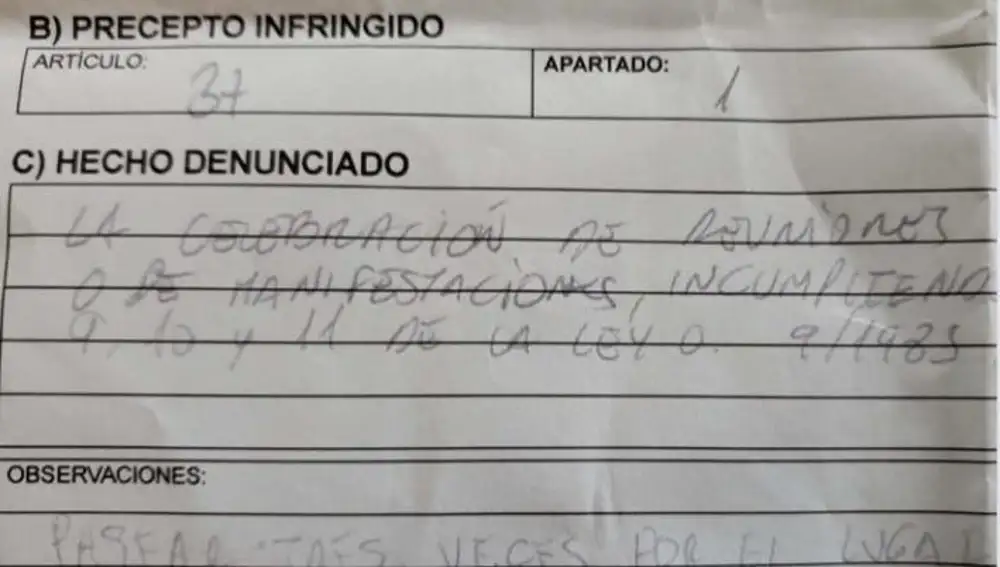 B) PRECEPTO INFRINGIDO
ARTÍCULO:
37
APARTADO:
1
C) HECHO DENUNCIADO
LA CELEBRACIÓN DE REUNIONES
O DE MANIFESTACIONES, INCUMPLIENDO
9, 10 y 11 DE LA LEY O. 9/1983
OBSERVACIONES:
PASEAR TRES VECES POR EL LUGAR